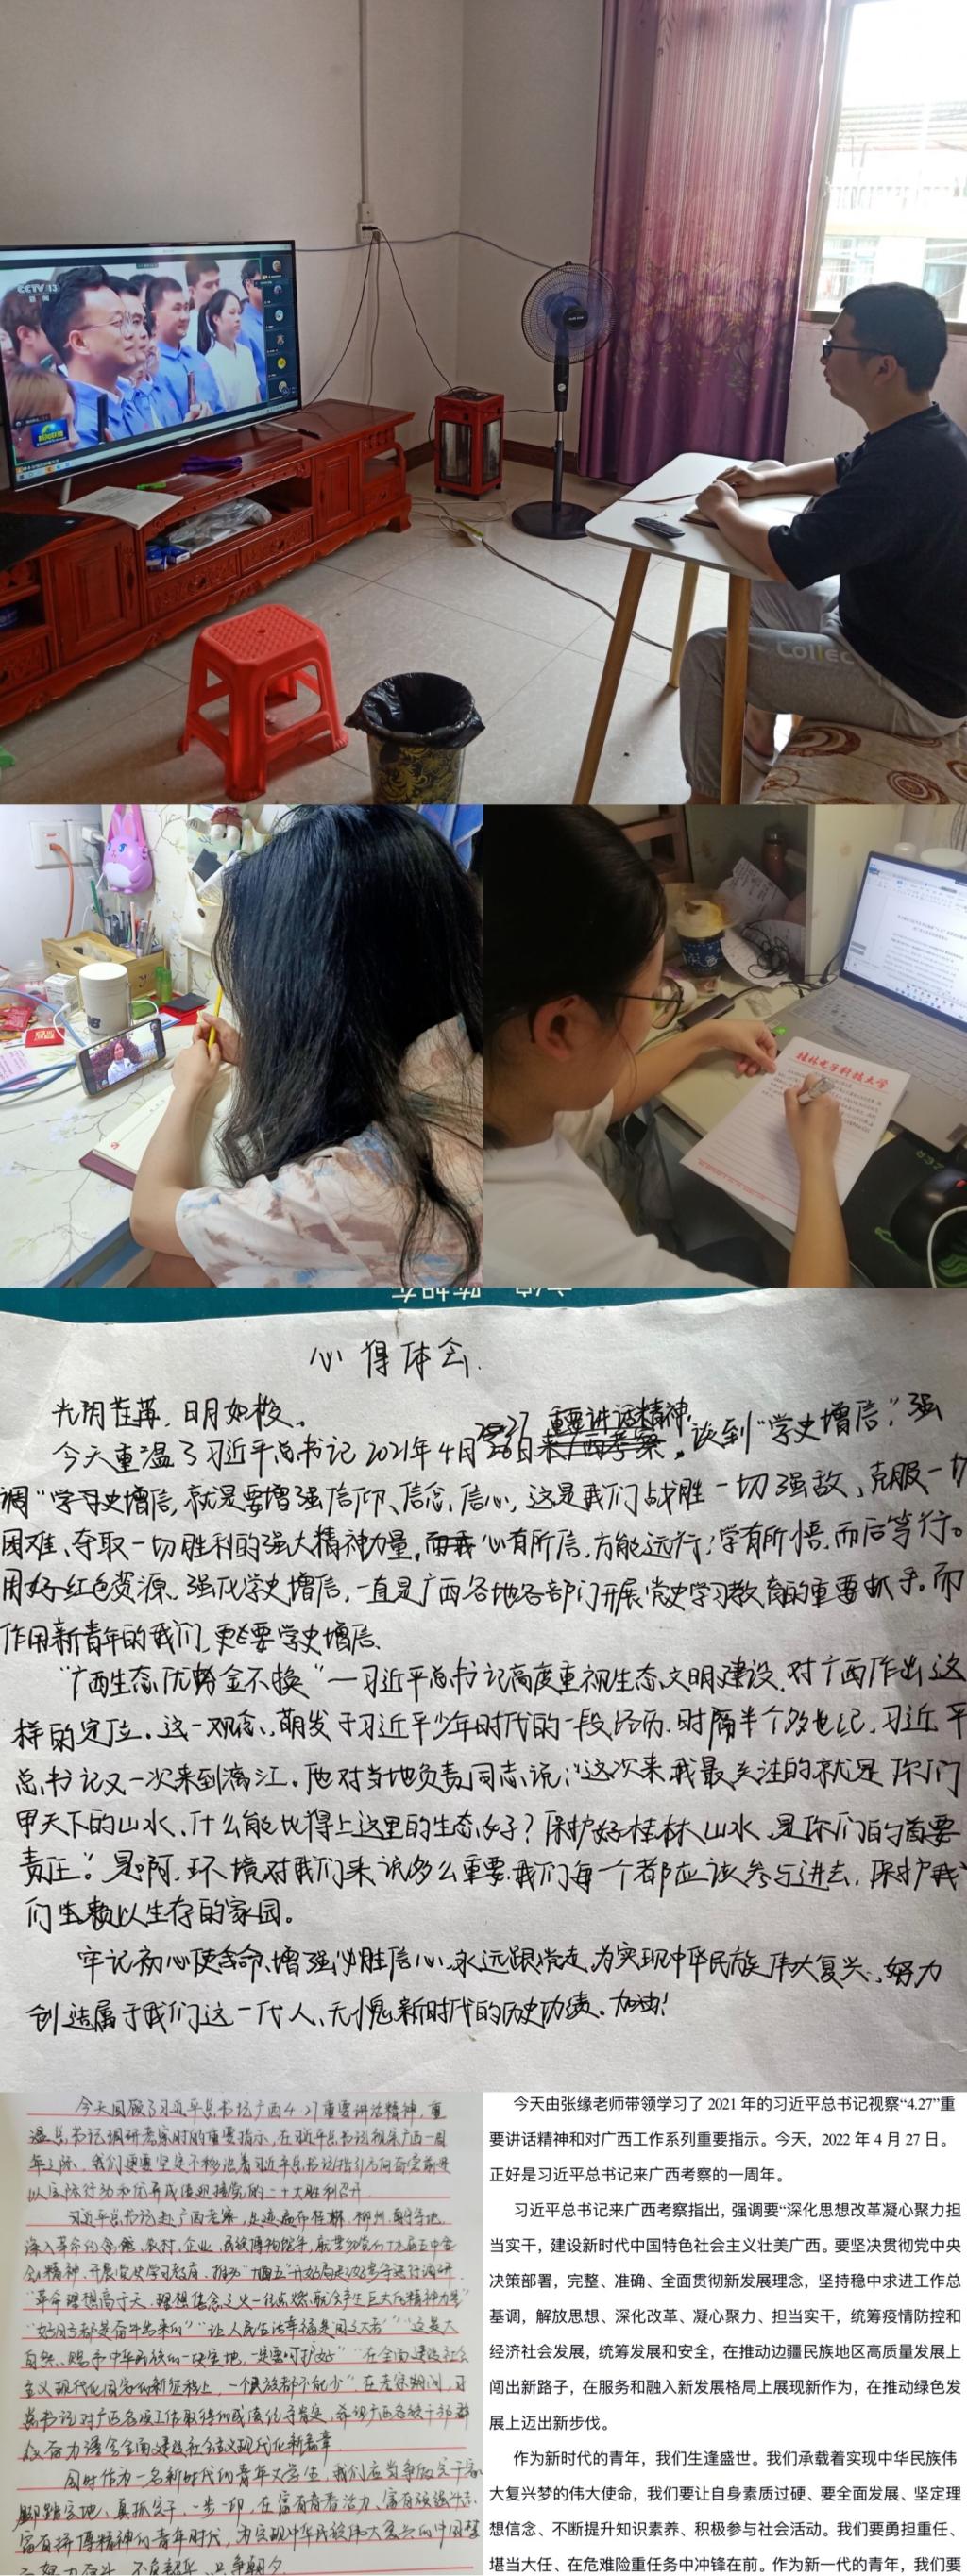 CCTV 13
新闻
Collec
桂林电子科技大学
心得体会.
光阴荏苒,日月如梭。
今天重温了习近平总书记2021年4月27日重要讲话精神,谈到“学史增信”,强
调“学习史增信,就是要增强信仰、信念、信心,这是我们战胜一切强敌、克服一切
困难、夺取一切胜利的强大精神力量。心有所信,方能远行;学有所悟,而后笃行。
用好红色资源、强化学史增信,一直是广西各地各部门开展党史学习教育的重要抓手。而
作用新青年的我们,更要学史增信、
“广西生态优势金不换”—习近平总书记高度重视生态文明建设,对广西作出这
样的定位。这一观念,萌发于习近平少年时代的一段经历.时隔半个多世纪,习近平
总书记又一次来到漓江。他对当地负责同志说:“这次来,我最关注的就是你们
甲天下的山水、什么能比得上这里的生态好?保护好桂林山水,是你们的首要
责任”。是啊,环境对我们来说多么重要,我们每一个都应该参与进去,保护我
们生赖以生存的家园。
牢记初心使命,增强必胜信心,永远跟党走,为实现中华民族伟大复兴、努力
创造属于我们这一代人、无愧新时代的历史功绩。加油!
今天回顾了习近平总书记广西4.27重要讲话精神,重
温总书记调研考察时的重要指示,在习近平总书记视察广西一周
年之际,我们更要坚定不移沿着习近平总书记指引方向奋勇前进
以实际行动和优异成绩迎接党的二十大胜利召开.
习近平总书记赴广西考察,足迹遍布桂林、柳州、南宁等地,
深入革命纪念馆、农村、企业、民族博物馆等,就贯彻党的十九届五中全
会精神、开展党史学习教育、推动“十四五”开好局起好步等进行调研
“革命理想高于天,理想信念之火一经点燃,就会产生巨大的精神力量”
“好日子都是奋斗出来的”“让人民生活幸福是国之大者”“这是大
自然赐予中华民族的一块宝地,一定要呵护好”“在全面建设社会
主义现代化国家的新征程上,一个民族都不能少”,在考察期间,习
总书记对广西各项工作取得的成绩给予肯定,希望广西各级干部群
众奋力谱写全面建设社会主义现代化新篇章.
同时作为一名新时代的青年大学生,我们应当争做实干家
脚踏实地、真抓实干,一步一印,在富有青春活力、富有顽强斗志、
富有拼搏精神的青年时代,为实现中华民族伟大复兴的中国梦
努力奋斗,不负韶华,只争朝夕.
今天由张缘老师带领学习了 2021 年的习近平总书记视察“4.27”重
要讲话精神和对广西工作系列重要指示。今天，2022 年 4 月 27 日。
正好是习近平总书记来广西考察的一周年。
习近平总书记来广西考察指出，强调要“深化思想改革凝心聚力担
当实干，建设新时代中国特色社会主义壮美广西。要坚决贯彻党中央
决策部署，完整、准确、全面贯彻新发展理念，坚持稳中求进工作总
基调，解放思想、深化改革、凝心聚力、担当实干，统筹疫情防控和
经济社会发展，统筹发展和安全，在推动边疆民族地区高质量发展上
闯出新路子，在服务和融入新发展格局上展现新作为，在推动绿色发
展上迈出新步伐。
作为新时代的青年，我们生逢盛世。我们承载着实现中华民族伟
大复兴梦的伟大使命，我们要让自身素质过硬、要全面发展、坚定理
想信念、不断提升知识素养、积极参与社会活动。我们要勇担重任、
堪当大任、在危难险重任务中冲锋在前。作为新一代的青年，我们要